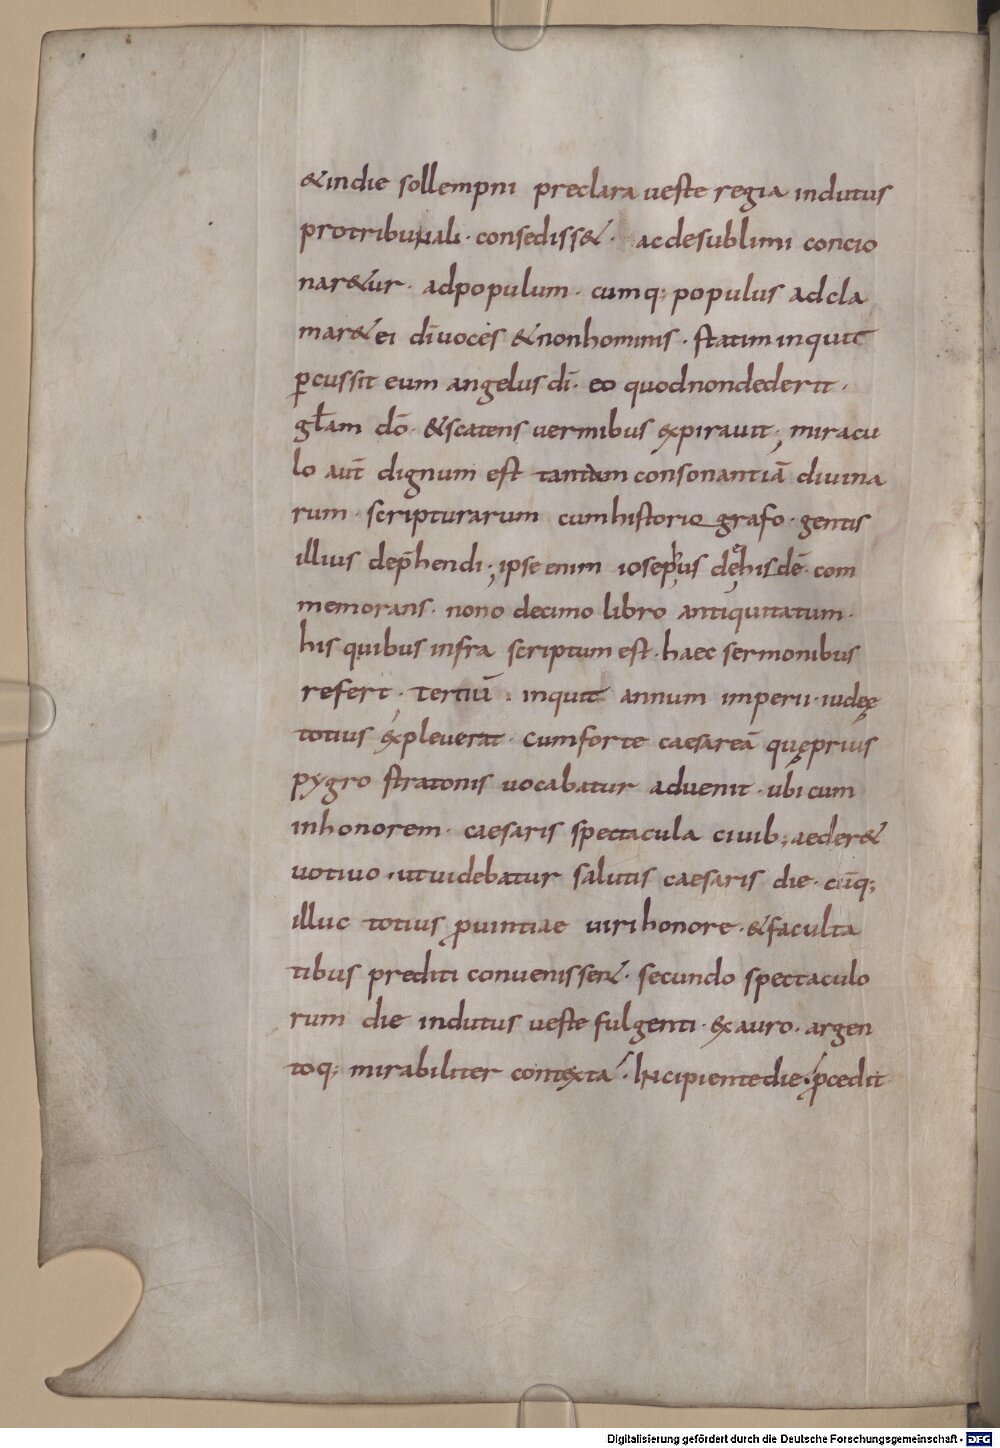 &indie sollempni preclara ueste regia indutus
protribunali · consediss& · acdesublimi concio
nar&ur · adpopulum · cumq; populus adcla
mar& ei dīuoces &nonhominis · statim inquit
ꝑcussit eum angelus dī · eo quodnondederit ·
gɫam dō · &scatens uermibus expirauit; miracu
lo aut̄ dignum est tantam consonantiā diuina
rum scripturarum cumhistorio grafo · gentis
illius dep̄hendi; ipse enim iosephus de hisdē · com
memorans · nono decimo libro antiquitatum ·
his quibus infra scriptum est · haec sermonibus
refert · Tertiū · inquit annum imperii · iudeę
totius expleuerat · cumforte caesareā quęprius
pygro stratonis uocabatur aduenit · ubi cum
inhonorem · caesaris spectacula ciuib; aeder&
uotiuo · utuidebatur salutis caesaris die · cūq;
illuc totius ꝓuintiae uiri honore · &faculta
tibus prediti conuenissen& · secundo spectaculo
rum die indutus ueste fulgenti · ex auro · argen
toq; mirabiliter contexta · Incipiente die · ꝓcedit
Digitalisierung gefördert durch die Deutsche Forschungsgemeinschaft - DFG